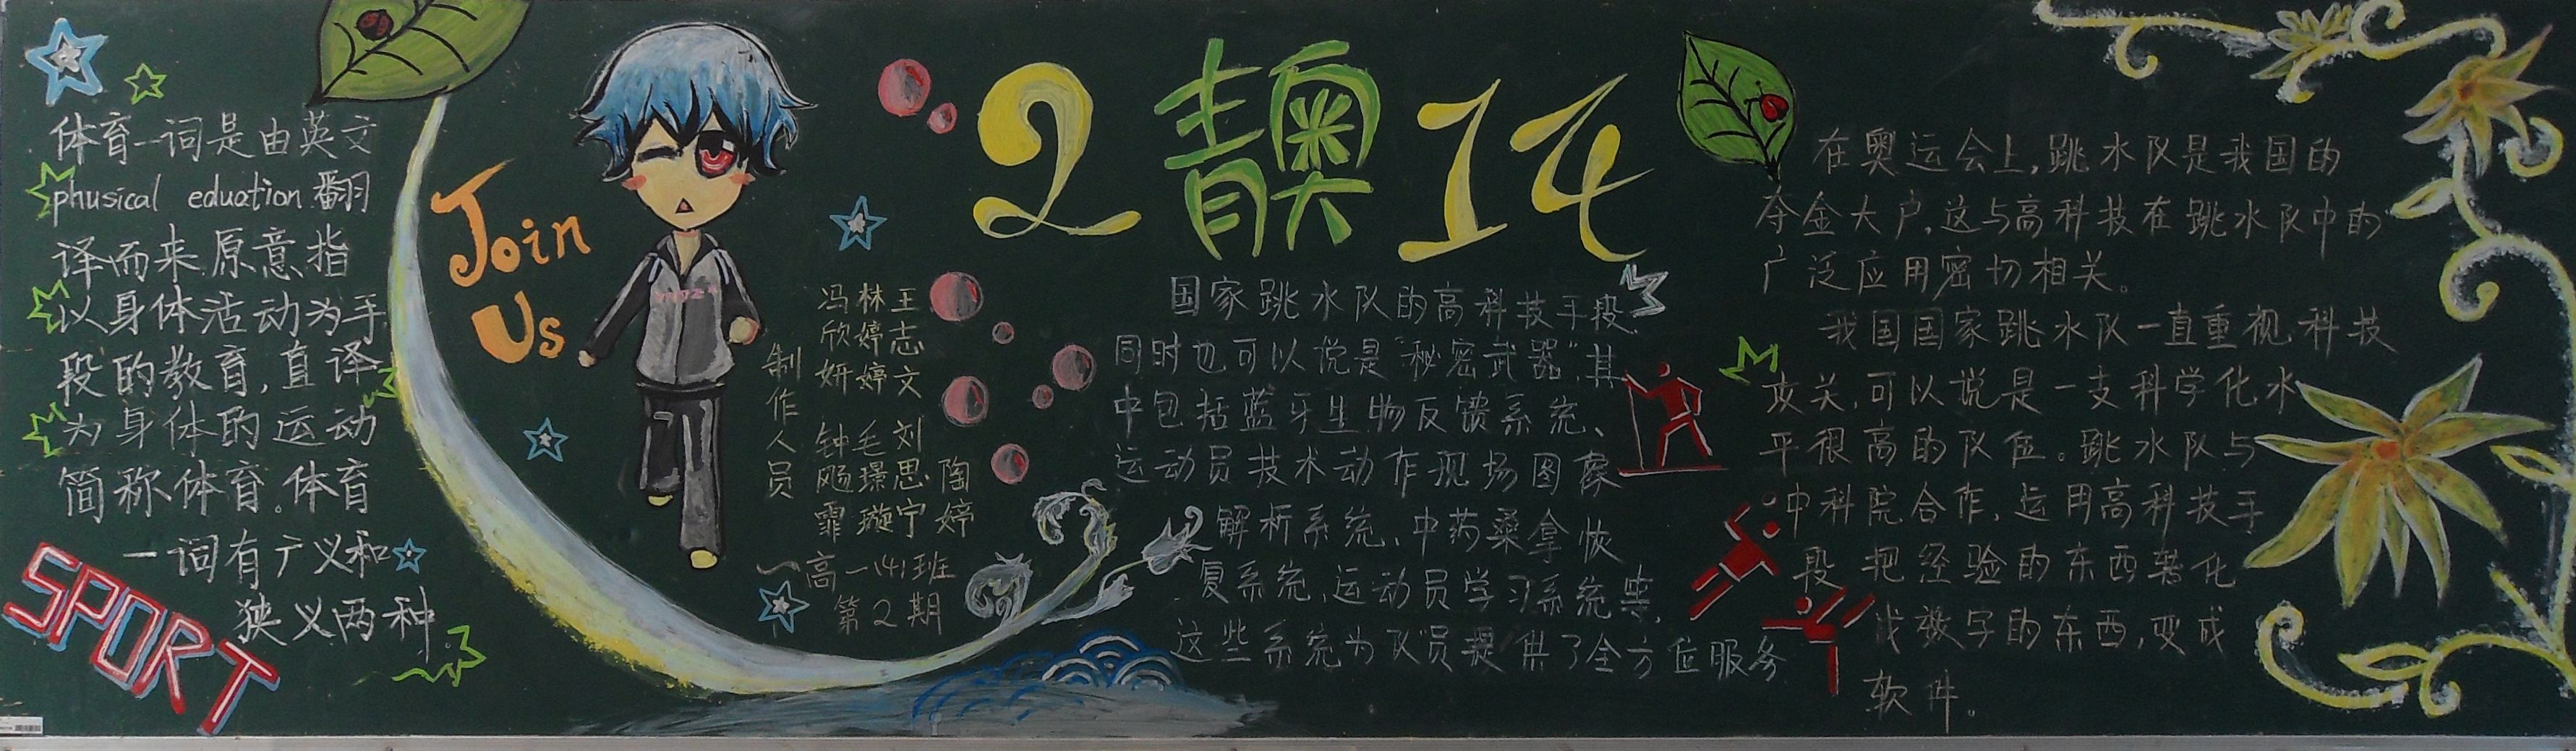 体育一词是由英文
phusical eduation 翻
译而来.原意指
以身体活动为手
段的教育,直译
为身体的运动
简称体育.体育
一词有广义和
狭义两种
SPORT
Join
Us
制作人员
冯欣妍 林婷婷 王志文
钟飏霏 毛璟璇 刘思宁 陶婷
高一(4)班
第2期
2青奥14
国家跳水队的高科技手段.
同时也可以说是“秘密武器”,其
中包括蓝牙生物反馈系统、
运动员技术动作现场图像
解析系统、中药桑拿恢
复系统、运动员学习系统等,
这些系统为队员提供了全方位服务
在奥运会上,跳水队是我国的
夺金大户,这与高科技在跳水队中的
广泛应用密切相关。
我国国家跳水队一直重视科技
攻关,可以说是一支科学化水
平很高的队伍。跳水队与
中科院合作,运用高科技手
段把经验的东西转化
成数字的东西,变成
软件。